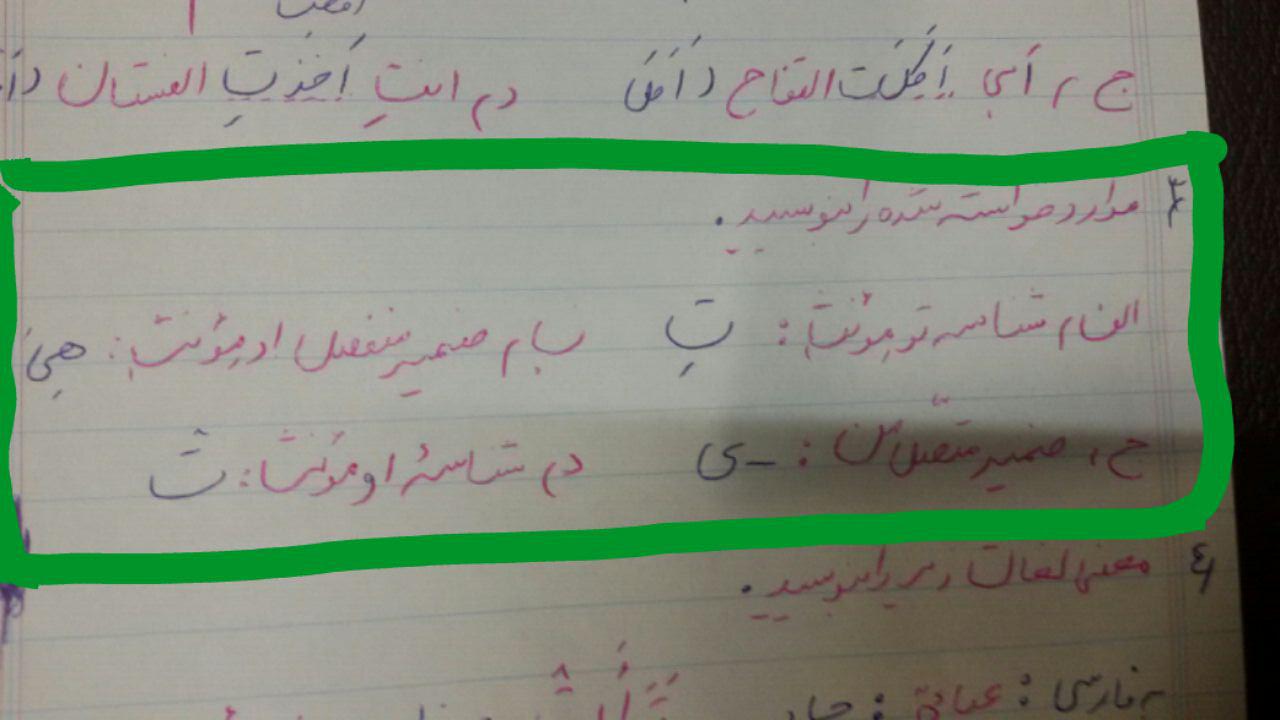 ج ، أبی أَکَلَت التفاح (أَکَلَ) د ، انتِ أَخَذتِ الفستان
۳ موارد خواسته شده را بنویسید.
الف ، شناسه تو مؤنث : تِ ب ، ضمیر منفصل او مؤنث : هِیَ
ج ، ضمیر متّصل من : ـی د ، شناسهٔ او مؤنث : تْ
٤ معنی لغات زیر را بنویسید.
فارسی : عبادة :